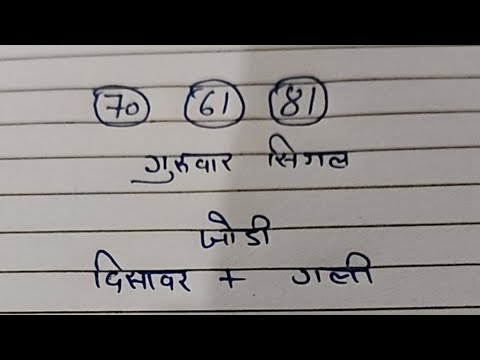 70 61 81
गुरुवार सिगल
जोडी
दिसावर + गली